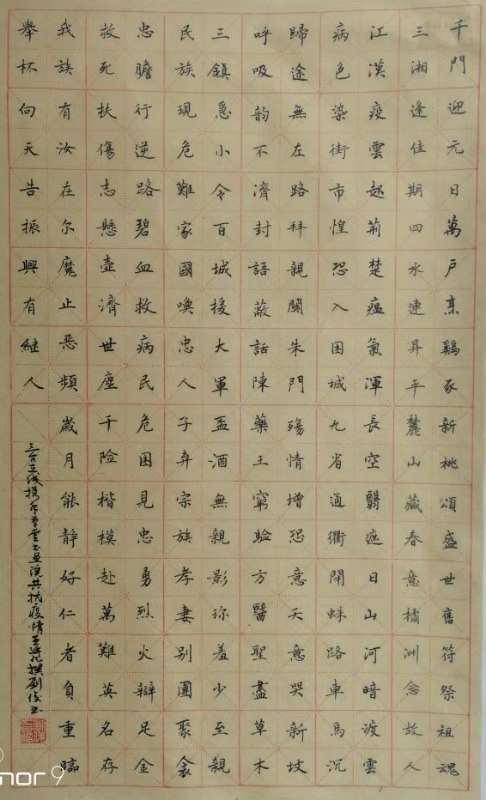 千門迎元日萬戶烹鷄豕新桃頌盛世舊符祭祖魂
三湘逢佳期四水連昇平麓山藏春意橘洲念故人
江漢疫雲起荊楚瘟氣渾長空翳遮日山河暗渡雲
病色染街市惶恐入困城九省通衢閉蛛路車馬沉
歸途無左路拜親闔朱門殤情增恐意天意哭新坟
呼吸韵不濟封語蔽話陳藥王窮驗方醫聖盡草木
三鎮急小令百城援大軍盃酒無親影珎羞少至親
民族現危難家國喚忠人子弃宗族孝妻別團聚衾
忠膽行逆路碧血救病民危困見忠勇烈火辯足金
救死扶傷志懸壺濟世塵千险楷模赴萬難英名存
我族有汝在尔魔止恶頻歲月能靜好仁者負重臨
舉杯向天告振興有継人
共抗疫情 撰劉俊书
onor 9